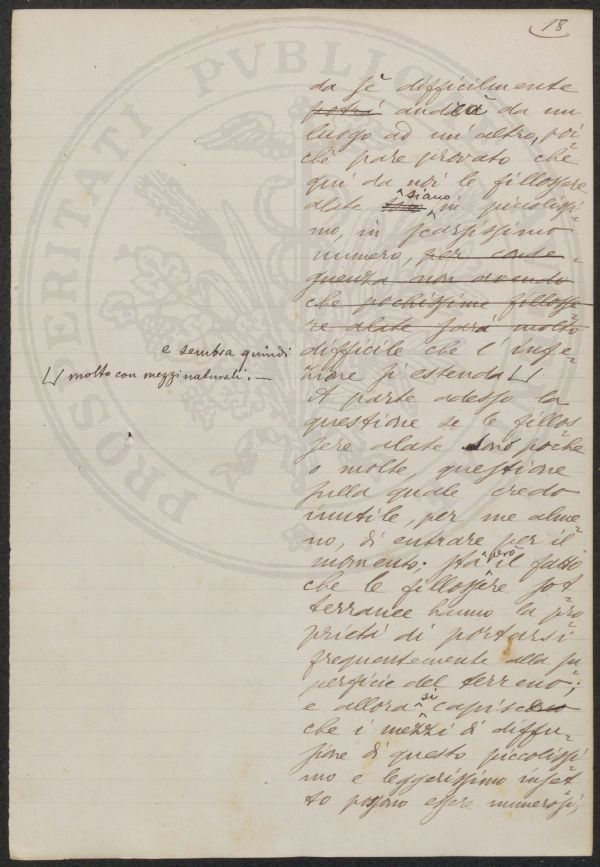 18
da sè difficilmente
potrà andrà da un
luogo ad un'altro, poi=
chè pare provato che
qui da noi le fillossere
alate siano in piccolissi=
mo, in scarsissimo
numero, per conse=
guenza non avendo
che pochissime fillosse=
re alate sarà molto
e sembra quindi
difficile che l'infe=
zione si estenda
molto con mezzi naturali. —
A parte adesso la
questione se le fillos=
sere alate sono poche
o molte, questione
sulla quale credo
inutile, per me alme=
no, di entrare per il
momento; sta però il fatto
che le fillossere sot=
terranee hanno la pro=
prietà di portarsi
frequentemente alla su=
perficie del terreno;
e allora si capisce
che i mezzi di diffu=
sione di questo piccolissi=
mo e leggerissimo inset=
to possono essere numerosi,
PROSPERITATI PVBLICAE